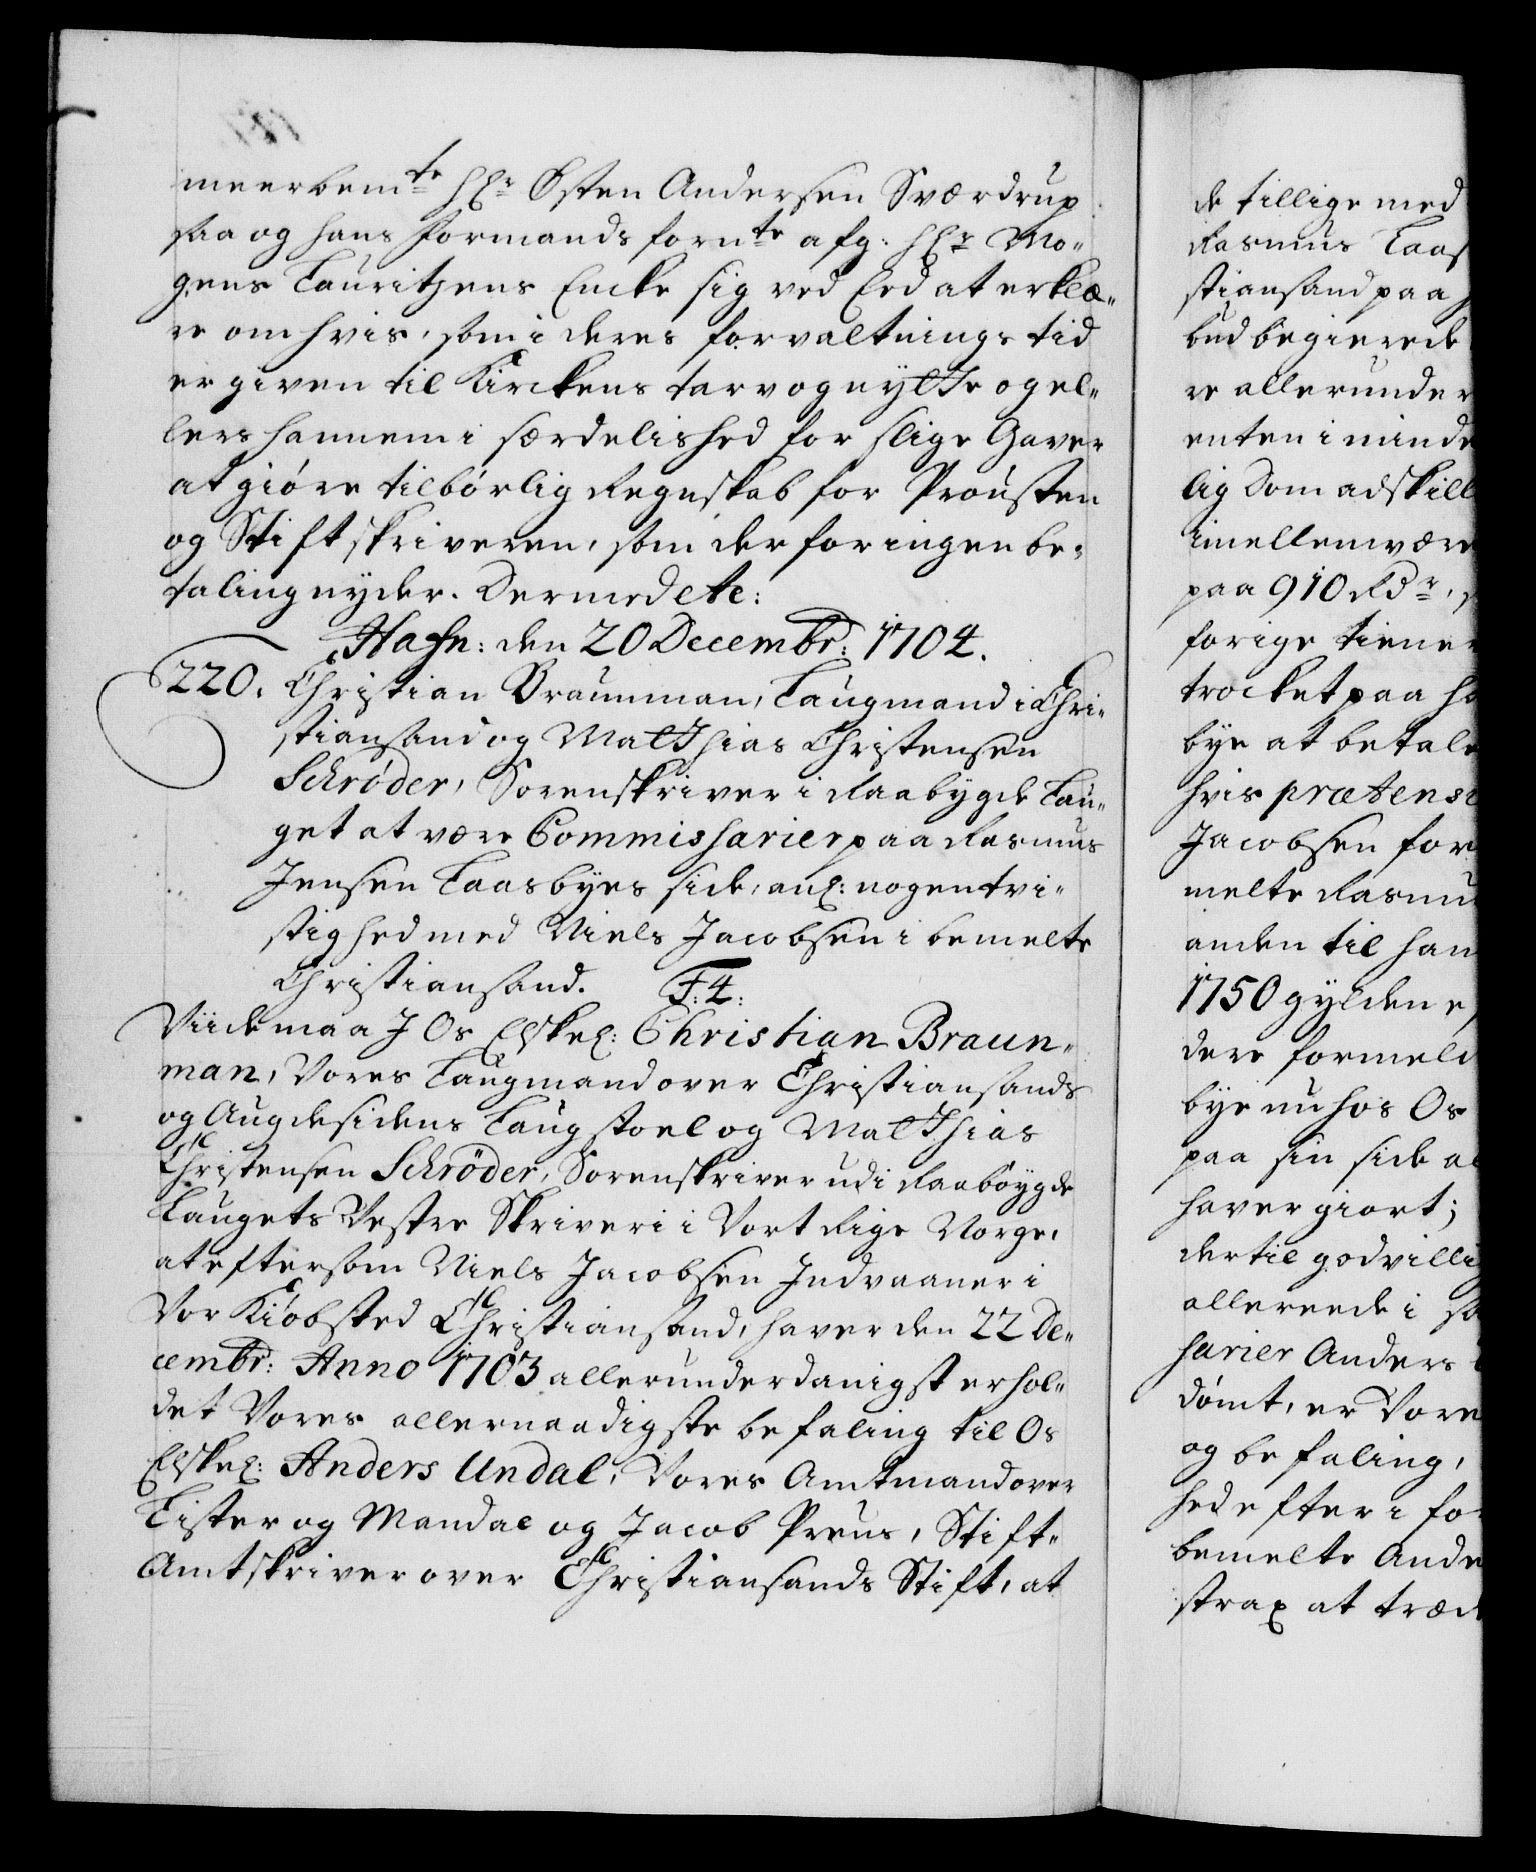 meerbemte HEr Østen Andersen Sværdrup
saa og hans formands fornte afg: HEr Mo„
gens Lauritzens Encke sig ved Eed at erklæ„
re om hvis, som i deres forvaltnings tid
er given til Kirckens tarv og nytte og el„
lers hannem i særdelished for slige Gaver
at giøre tilbørlig Regnskab for Prousten
og Stiftskriveren, som derfor ingen be„
taling nyder. Dermed etc:
Hafn: den 20 Decembr: 1704.
220. Christian Braunman, Laugmand i Chri„
stiansand og Matthias Christensen
Schrøder, Sorenskriver i Raabygde Lau„
get at være Commissarier paa Rasmus
Jensen Laasbyes side, anl: nogen tvi„
stighed med Niels Jacobsen i bemelte
Christiansand. F: 4:
Viide maa I Os Elskel: Christian Braun„
man, Vores Laugmand over Christiansands
og Augdesidens Laugstoel og Matthias
Christensen Schrøder, Sorenskriver udi Raabøygde
Laugets Vestre Skriveri i Vort Rige Norge,
at eftersom Niels Jacobsen Indvaaner i
Vor Kiøbsted Christiansand, haver den 22 De„
cembr: Anno 1703 allerunderdanigst erhol„
det Vores allernaadigste befaling til Os
Elskel: Anders Undal, Vores Amtmand over
Lister og Mandal og Jacob Preus, Stift„
Amtskriver over Christiansands Stift, at
de tillige med
Rasmus Laas
stiansand paa
bud begierede
re allerunder
enten i minde
lig Dom adskill
imellemvære
paa 910 Rdr,
forige tiener
trocket paa ha
bye at betale
hvis prætensi
Jacobsen for
melte Rasmu
anden til han
1750 gylden e
dere formeld
bye nu hos Os
paa sin side al
haver giort;
dertil godvillig
allereede i sa
sarier Anders
dømt, er Vore
og befaling,
hed efter i for
bemelte Ande
strax at træde